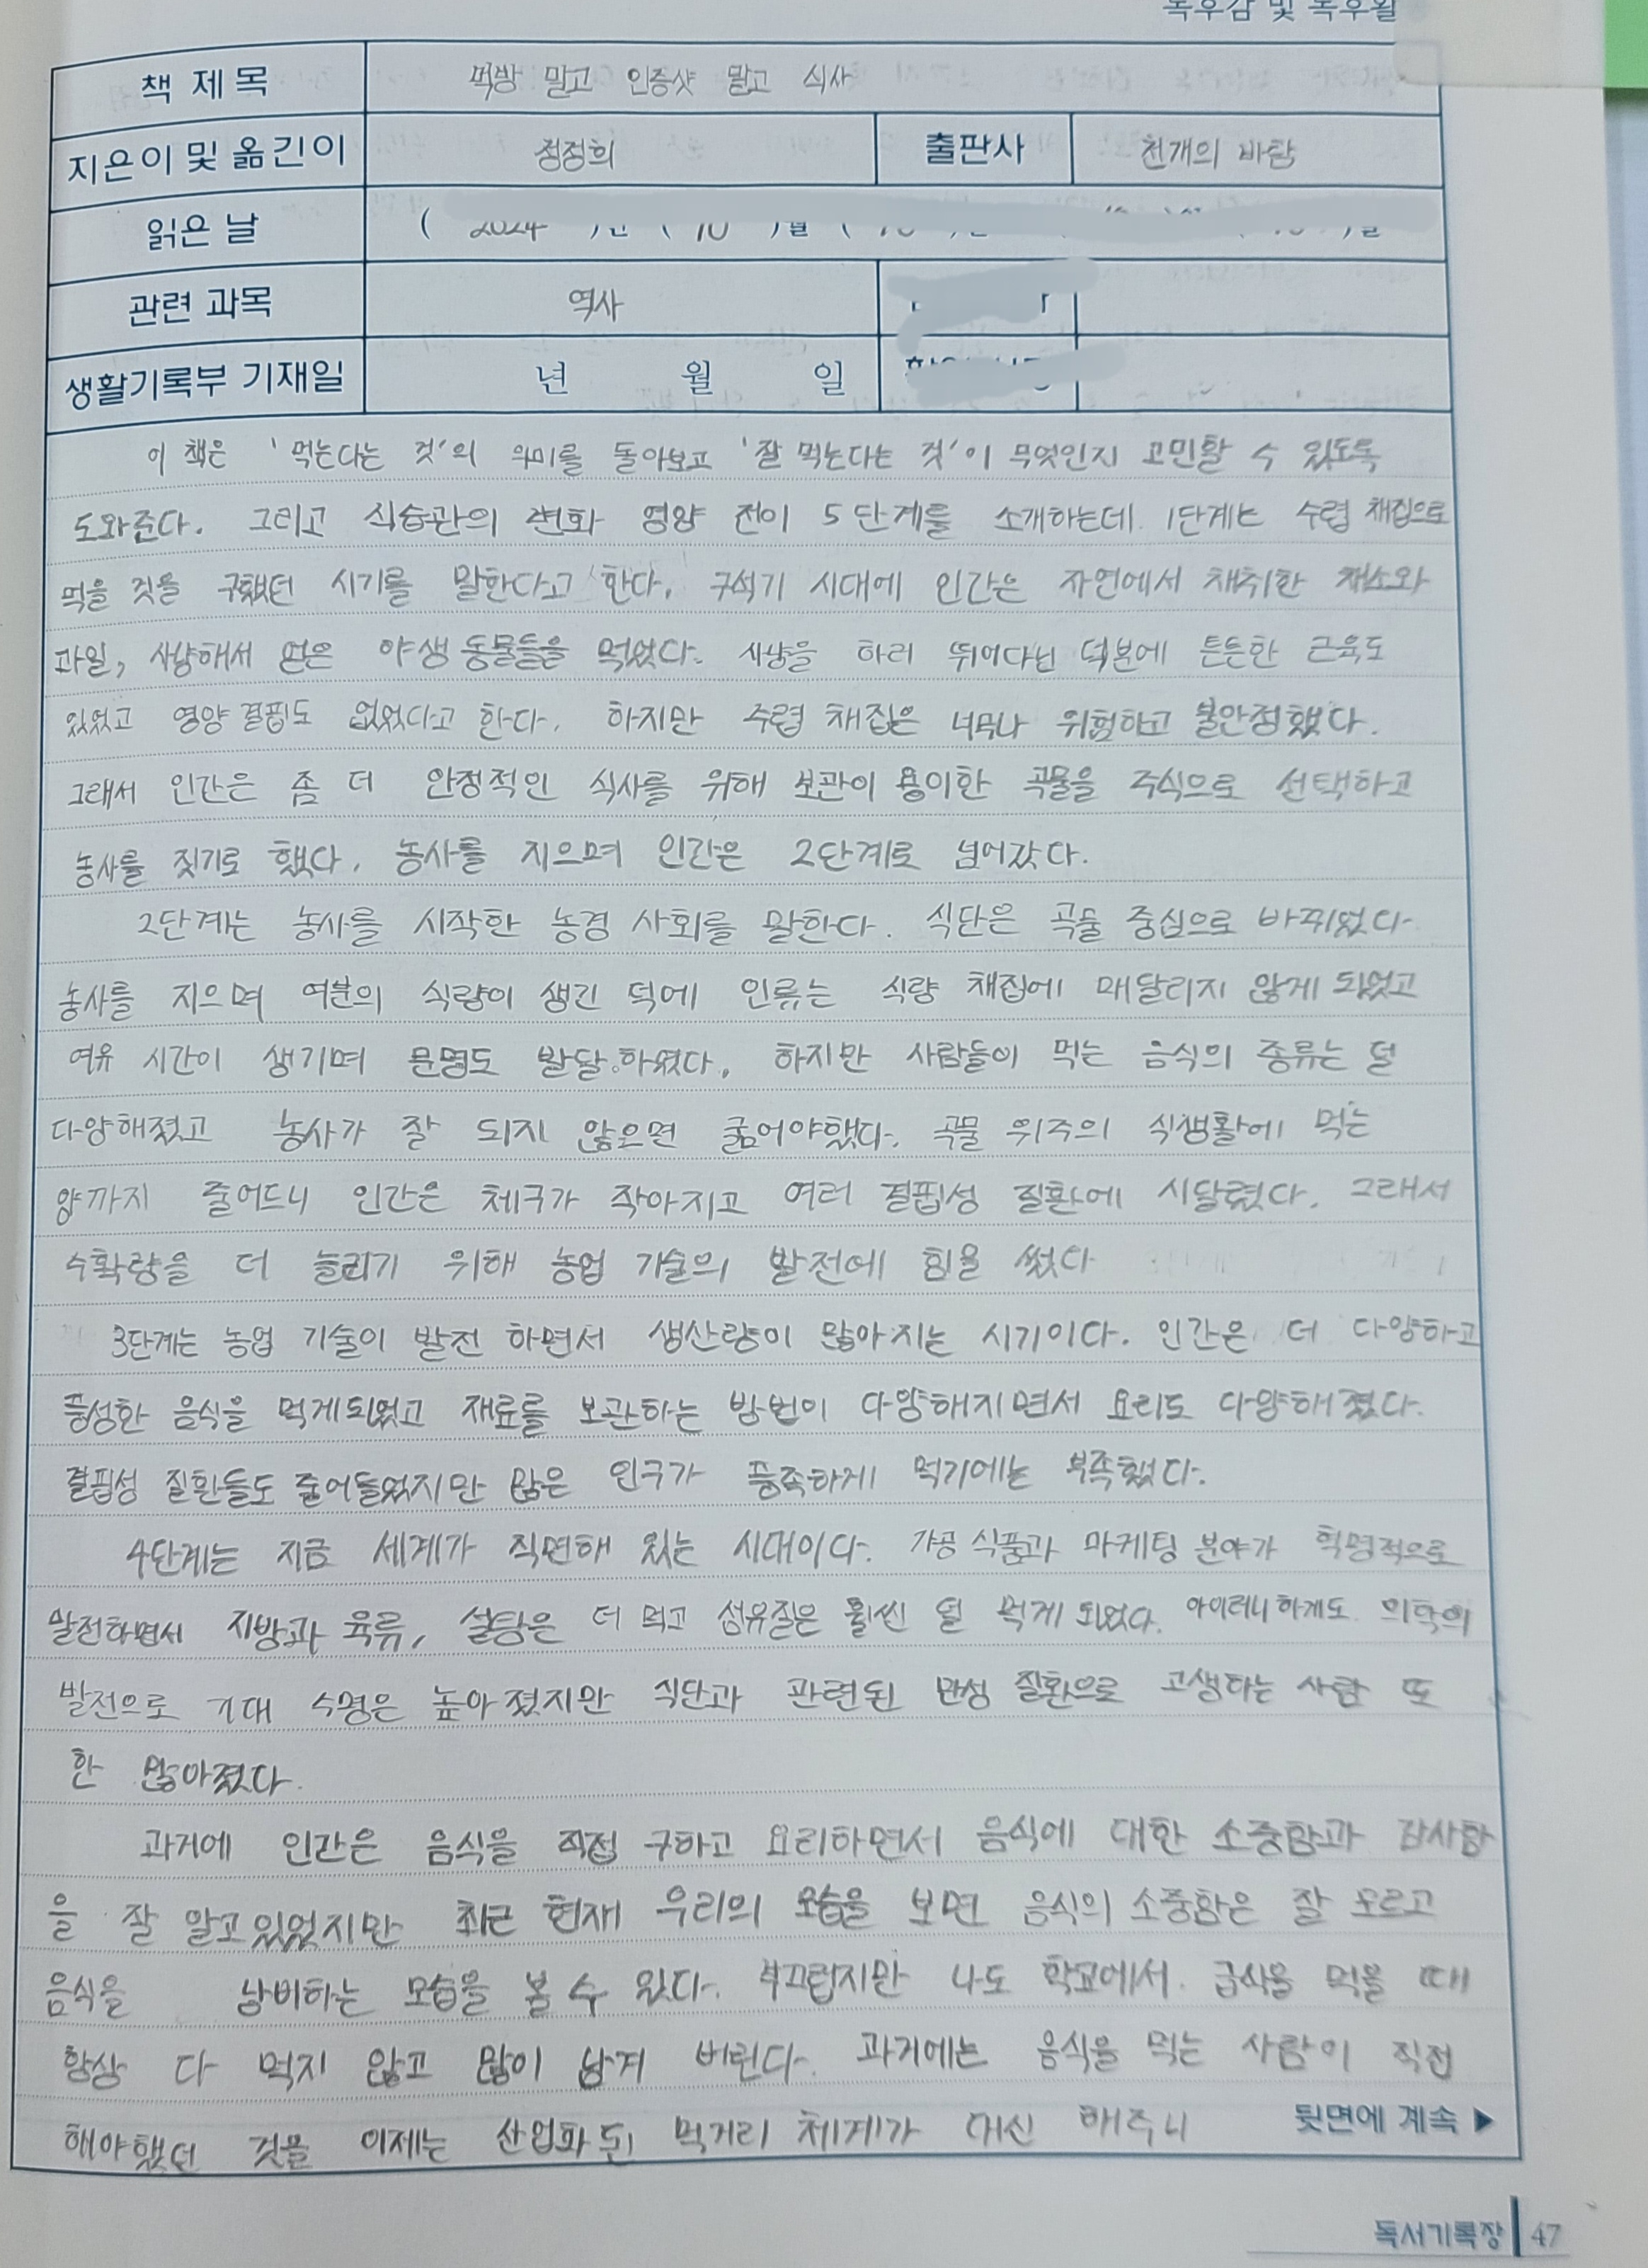 독후감 및 독후활
책 제 목 먹방 말고 인증샷 말고 식사
지은이 및 옮긴이 정정희 출판사 천개의 바람
읽은 날 ( 2024 )년 ( 10 )월 (
관련 과목 역사
생활기록부 기재일 년 월 일
이 책은 '먹는다는 것'의 의미를 돌아보고 '잘 먹는다는 것'이 무엇인지 고민할 수 있도록
도와준다. 그리고 식습관의 변화 영양 전이 5단계를 소개하는데 1단계는 수렵 채집으로
먹을 것을 구했던 시기를 말한다고 한다. 구석기 시대에 인간은 자연에서 채취한 채소와
과일, 사냥해서 얻은 야생 동물들을 먹었다. 사냥을 하러 뛰어다닌 덕분에 튼튼한 근육도
있었고 영양 결핍도 없었다고 한다. 하지만 수렵 채집은 너무나 위험하고 불안정했다.
그래서 인간은 좀 더 안정적인 식사를 위해 보관이 용이한 곡물을 주식으로 선택하고
농사를 짓기로 했다. 농사를 지으며 인간은 2단계로 넘어갔다.
2단계는 농사를 시작한 농경 사회를 말한다. 식단은 곡물 중심으로 바뀌었다
농사를 지으며 여분의 식량이 생긴 덕에 인류는 식량 채집에 매달리지 않게 되었고
여유 시간이 생기며 문명도 발달하였다. 하지만 사람들이 먹는 음식의 종류는 덜
다양해졌고 농사가 잘 되지 않으면 굶어야했다. 곡물 위주의 식생활에 먹는
양까지 줄어드니 인간은 체구가 작아지고 여러 결핍성 질환에 시달렸다. 그래서
수확량을 더 늘리기 위해 농업 기술의 발전에 힘을 썼다
3단계는 농업 기술이 발전 하면서 생산량이 많아지는 시기이다. 인간은 더 다양하고
풍성한 음식을 먹게되었고 재료를 보관하는 방법이 다양해지면서 요리도 다양해졌다.
결핍성 질환들도 줄어들었지만 많은 인구가 풍족하게 먹기에는 부족했다.
4단계는 지금 세계가 직면해 있는 시대이다. 가공 식품과 마케팅 분야가 혁명적으로
발전하면서 지방과 육류, 설탕은 더 먹고 섬유질은 훨씬 덜 먹게 되었다. 아이러니하게도 의학의
발전으로 기대 수명은 높아졌지만 식단과 관련된 만성 질환으로 고생하는 사람 또
한 많아졌다.
과거에 인간은 음식을 직접 구하고 요리하면서 음식에 대한 소중함과 감사함
을 잘 알고있었지만 최근 현재 우리의 모습을 보면 음식의 소중함은 잘 모르고
음식을 낭비하는 모습을 볼 수 있다. 부끄럽지만 나도 학교에서 급식을 먹을 때
항상 다 먹지 않고 많이 남겨 버린다. 과거에는 음식을 먹는 사람이 직접
해야했던 것을 이제는 산업화 된 먹거리 체계가 대신 해주니 뒷면에 계속 ▶
독서기록장 47